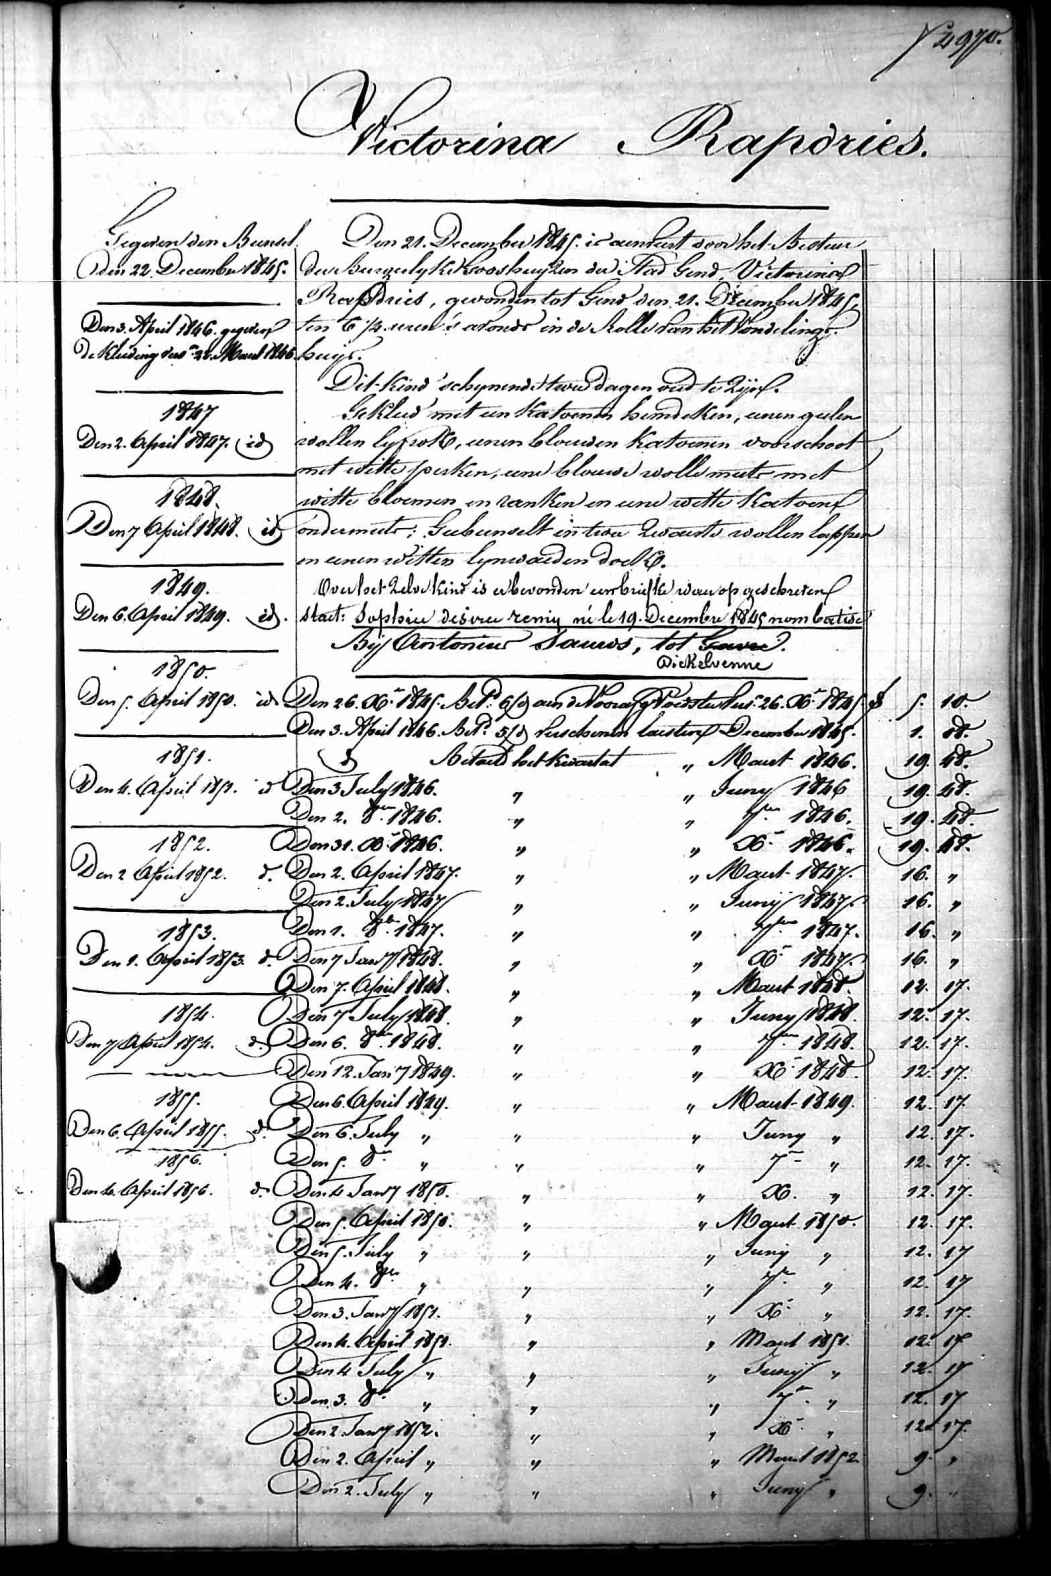 4970.
Victorina Rapdries.
Gegeven den Bunsel
den 22. December 1845.
Den 3. April 1846. gegeven
de Kleiding
1847
Den 2. April 1847. id
1848.
Den 7 April 1848. id
1849.
Den 6. April 1849. id.
1850.
Den 5. April 1850. id
1851.
Den 4. April 1851. d
1852.
Den 2 April 1852. d.
1853.
Den 1. April 1853. d.
1854.
Den 7 April 1854. d.
1855.
Den 6. April 1855. d.
1856.
Den 4. April 1856. d.
Den 21. December 1845. is aenveert door het Bestuur
der Burgerlyke Godshuyzen der Stad Gend, Victorina
Rapdries, gevonden tot Gend den 21. December 1845
ten 6 1/2 uren 's avonds in de Rolle van het Vondelings
huijs.
Dit kind schynende twee dagen oud te zijn.
Gekleed met een katoenen hemdeken, eenen geelen
wollen lyfrok, eenen blouwen katoenen voorschoot
met witte perken, eene blouwe wolle muts met
witte bloemen en ranken en eene witte katoene
ondermuts; Gebunselt in twee zwarte wollen lappen
en eenen witten lynwaeden doek.
Over het zelve kind is er bevonden een briefke waer op geschreven
staet: Sophie désirée remy né le 19. Decembre 1845 nom batisé
Bij Antonius Sauws, tot Gavre.
Dickelvenne
Den 26. Xr 1845. Betd 5/d aen de Voorafg Voedster 26. Xr 1845 f 5. 10.
Den 3. April 1846. Betd 5/d verschenen laesten December 1845. 1. 88.
d Betaeld het kwartael " Maert 1846. 19. 48.
Den 3 July 1846. " " Juny 1846 19. 48.
Den 2. 8ber 1846. " " 7ber 1846. 19. 48.
Den 31. Xr 1846. " " Xr 1846. 19. 48.
Den 2. April 1847. " " Maert 1847. 16. "
Den 2. July 1847 " " Junij 1847. 16. "
Den 1. 8br 1847. " " 7ber 1847. 16. "
Den 7 Jany 1848. " " Xr 1847. 16. "
Den 7. April 1848. " " Maert 1848. 12. 17.
Den 7 July 1848. " " Juny 1848. 12. 17.
Den 6. 8br 1848. " " 7ber 1848. 12. 17.
Den 12. Jany 1849. " " Xr 1848. 12. 17.
Den 6. April 1849. " " Maert 1849. 12. 17
Den 6. July " " " Juny " 12. 17.
Den 5. 8r " " " 7r " 12. 17.
Den 4 Jany 1850. " " X. " 12. 17.
Den 5. April 1850. " " Maert 1850. 12. 17.
Den 5. July " " " Juny " 12. 17
Den 4. 8br " " " 7r " 12. 17
Den 3. Jany 1851. " " Xr " 12. 17.
Den 4. April 1851. " " Maert 1851. 12. 17
Den 4 July " " " Junij " 12. 17
Den 3. 8r " " " 7r " 12. 17
Den 2 Jany 1852. " " Xr " 12 17.
Den 2. April " " " Maert 1852 9. "
Den 2. July " " " Juny " 9. "